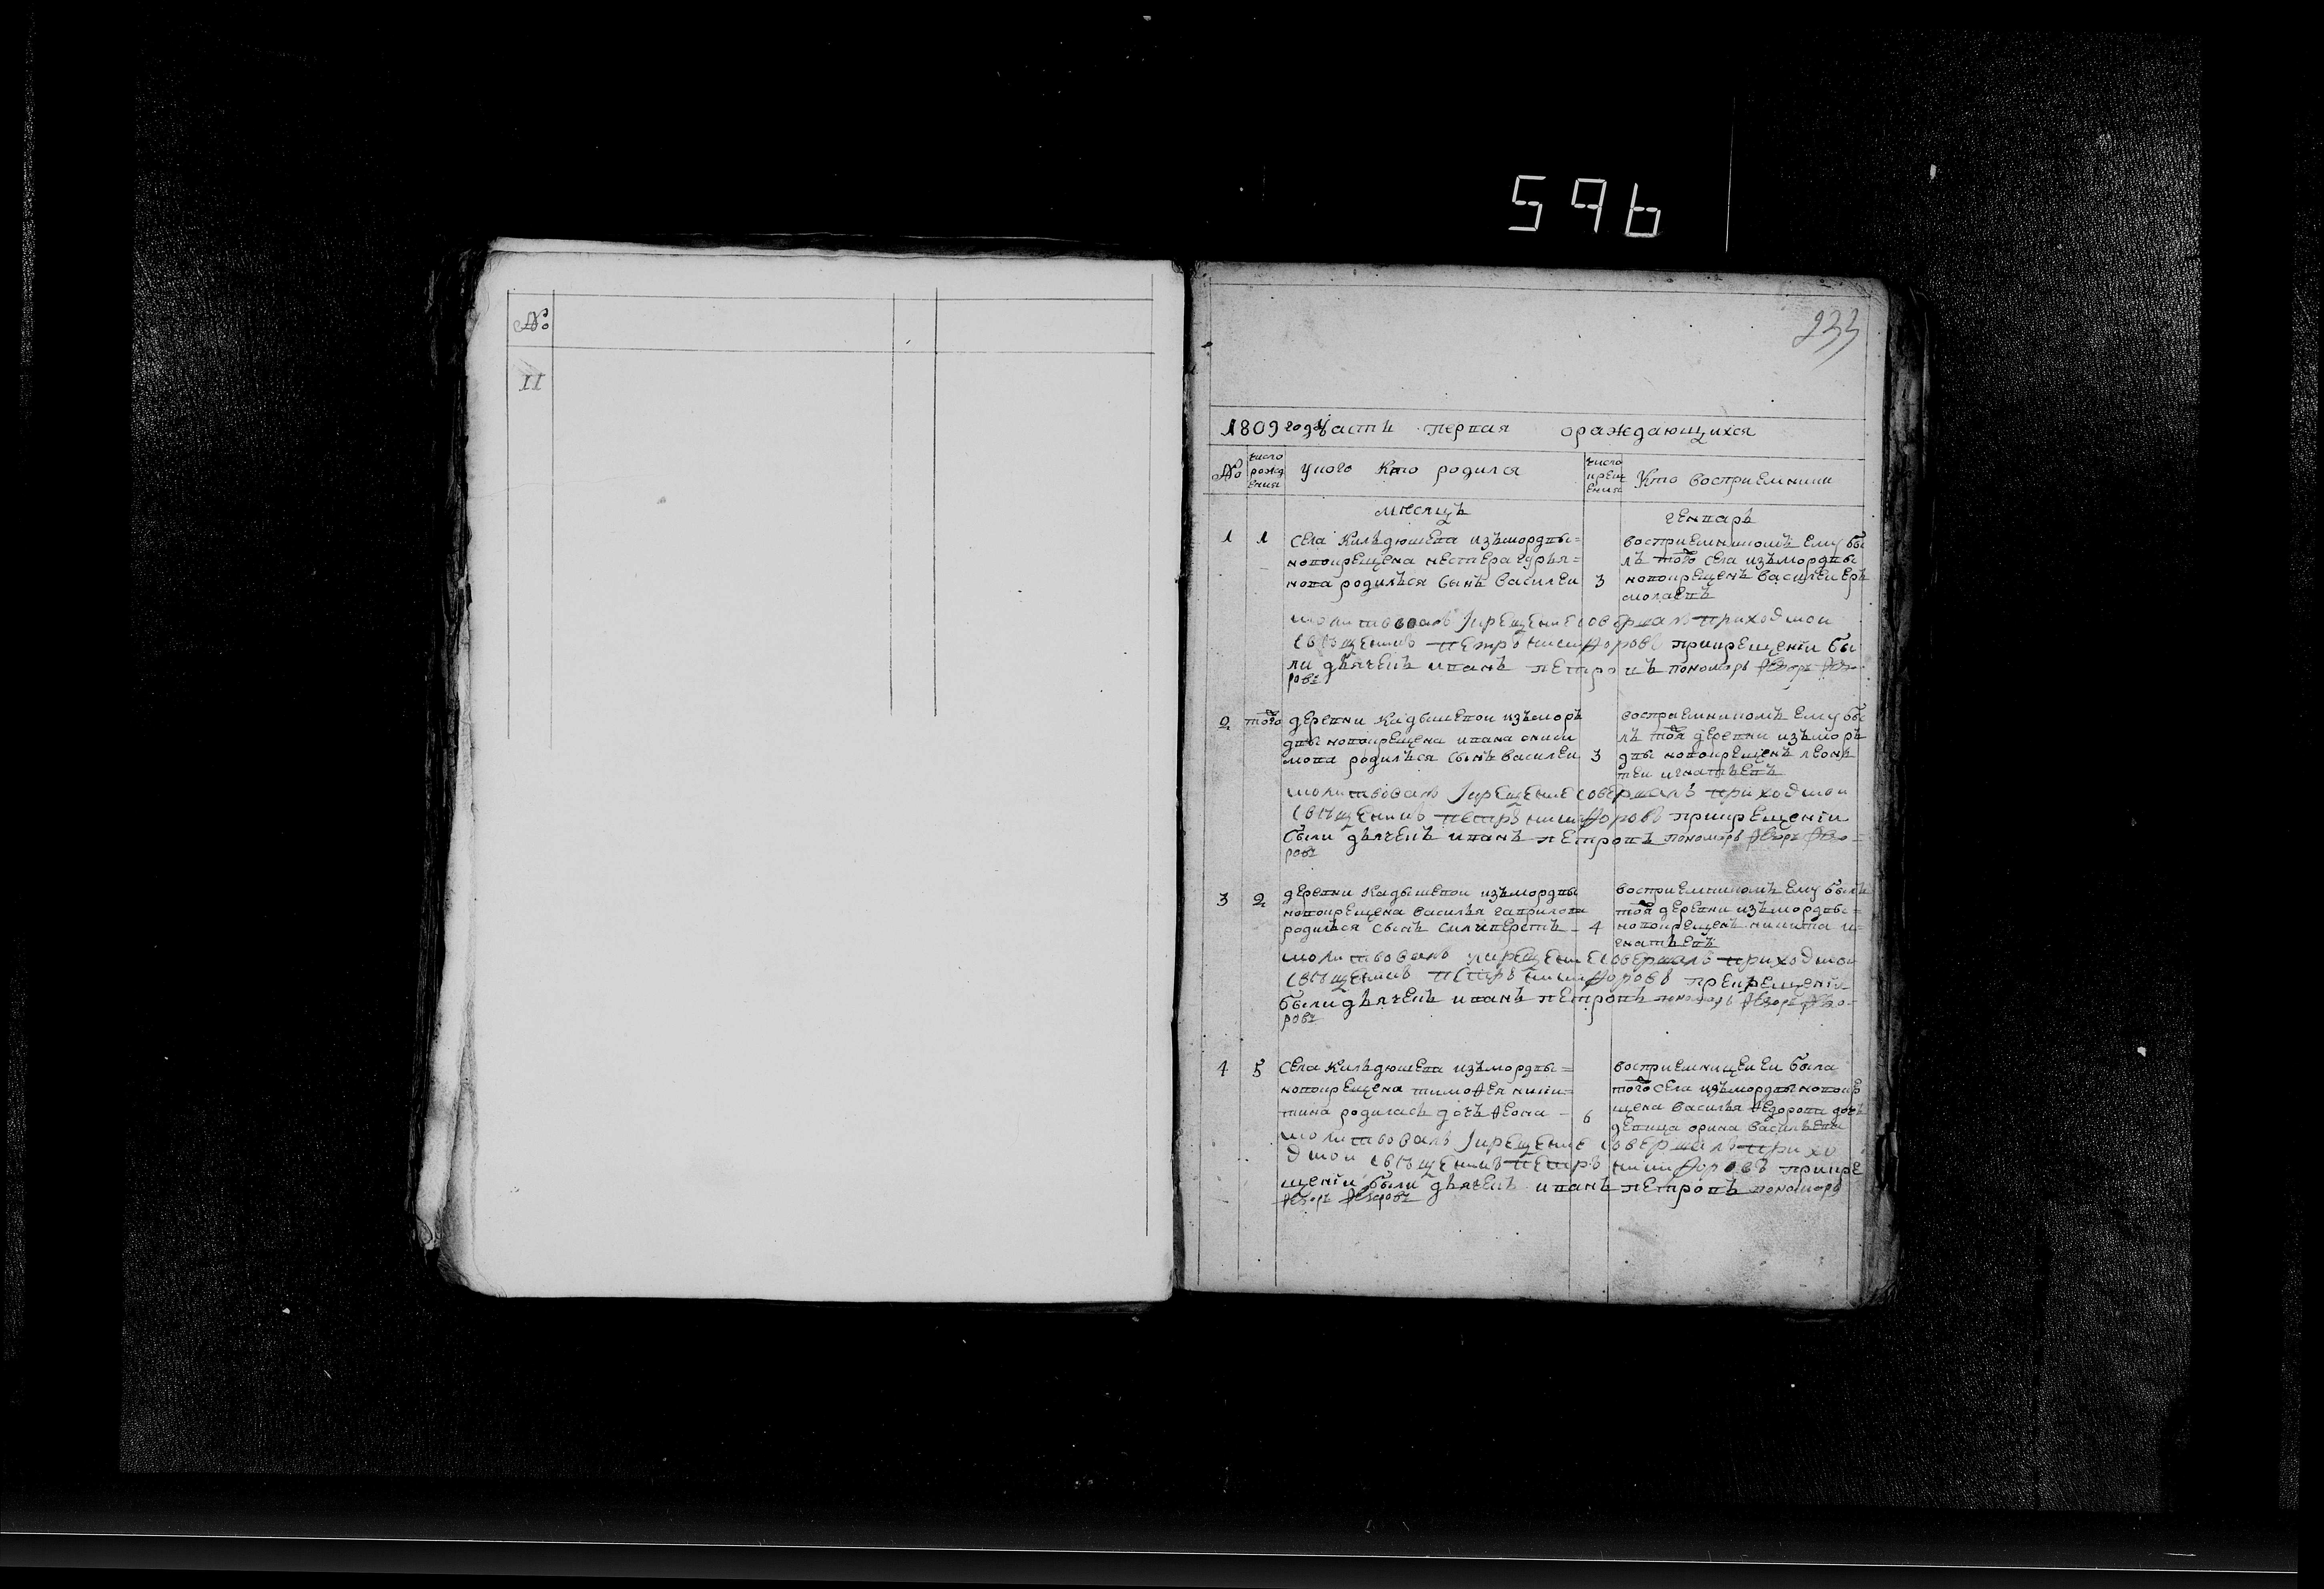 596
№
II
233
1809 года Часть первая ораждающихся
№
число рожд ения
у кого кто родился
число крещ ения
кто восприемники
месяцъ генварь
1 1
села Кильдюшева изъ мордвы=
новокрещена нестера гурья=
нова родилъся сынъ василеи
3
восприемникомъ ему бы
лъ того села изъ мордвы
новокрещенъ василеи ер
молаевъ
молитвовалъ и крещение совершалъ приходской
священникъ петръ никифоровъ при крещенiи бы
ли дьячекъ иванъ петровъ пономарь федоръ федо
ровъ
2 того
деревни Кадышевои изъ морь
двы новокрещена ивана ониси
мова родилъся сынъ василеи
3
восприемникомъ ему бы
лъ тоя деревни изъ морь
двы новокрещенъ леонь
теи игнатьевъ
молитвовалъ и крещение совершалъ приходской
священникъ петръ никифоровъ при крещенiи
были дьячекъ иванъ петровъ пономарь федоръ федо=
ровъ
3 2
деревни Кадышевои изъ мордвы
новокрещена василья гаврилова
родилъся сынъ силиверстъ
4
восприемникомъ ему былъ
тоя деревни изъ мордвы=
новокрещенъ никита и=
гнатьевъ
молитвовалъ и крещение совершалъ приходской
священникъ петръ никифоровъ пре крещенiи
были дьячекъ иванъ петровъ пономарь федоръ федо=
ровъ
4 5
села Кильдюшева изъ мордвы=
новокрещена тимофея ники=
тина родилась дочь фекла
6
восприемницеи еи была
того села изъ мордвы новокр
щена василья федорова дочь
девица орина васильева
молитвовалъ и крещение совершалъ прихо
дской священникъ петръ никифоровъ при кре
щенiи были дьячекъ иванъ петровъ пономарь
федоръ федоровъ